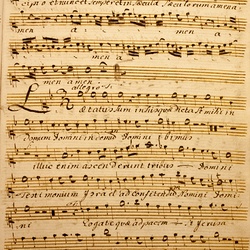 et nunc et semper et in Secula Seculorum amen a
men a men a
men a
men amen
allegro
Lætatus Sum in his quæ dicta Sunt mihi in
domum Domini in domum Domini ibimus
illuc enim ascenderunt tribus Domini
Testimonium Israel ad confitendum Nomini Domi
ni Rogate quæ ad pacem